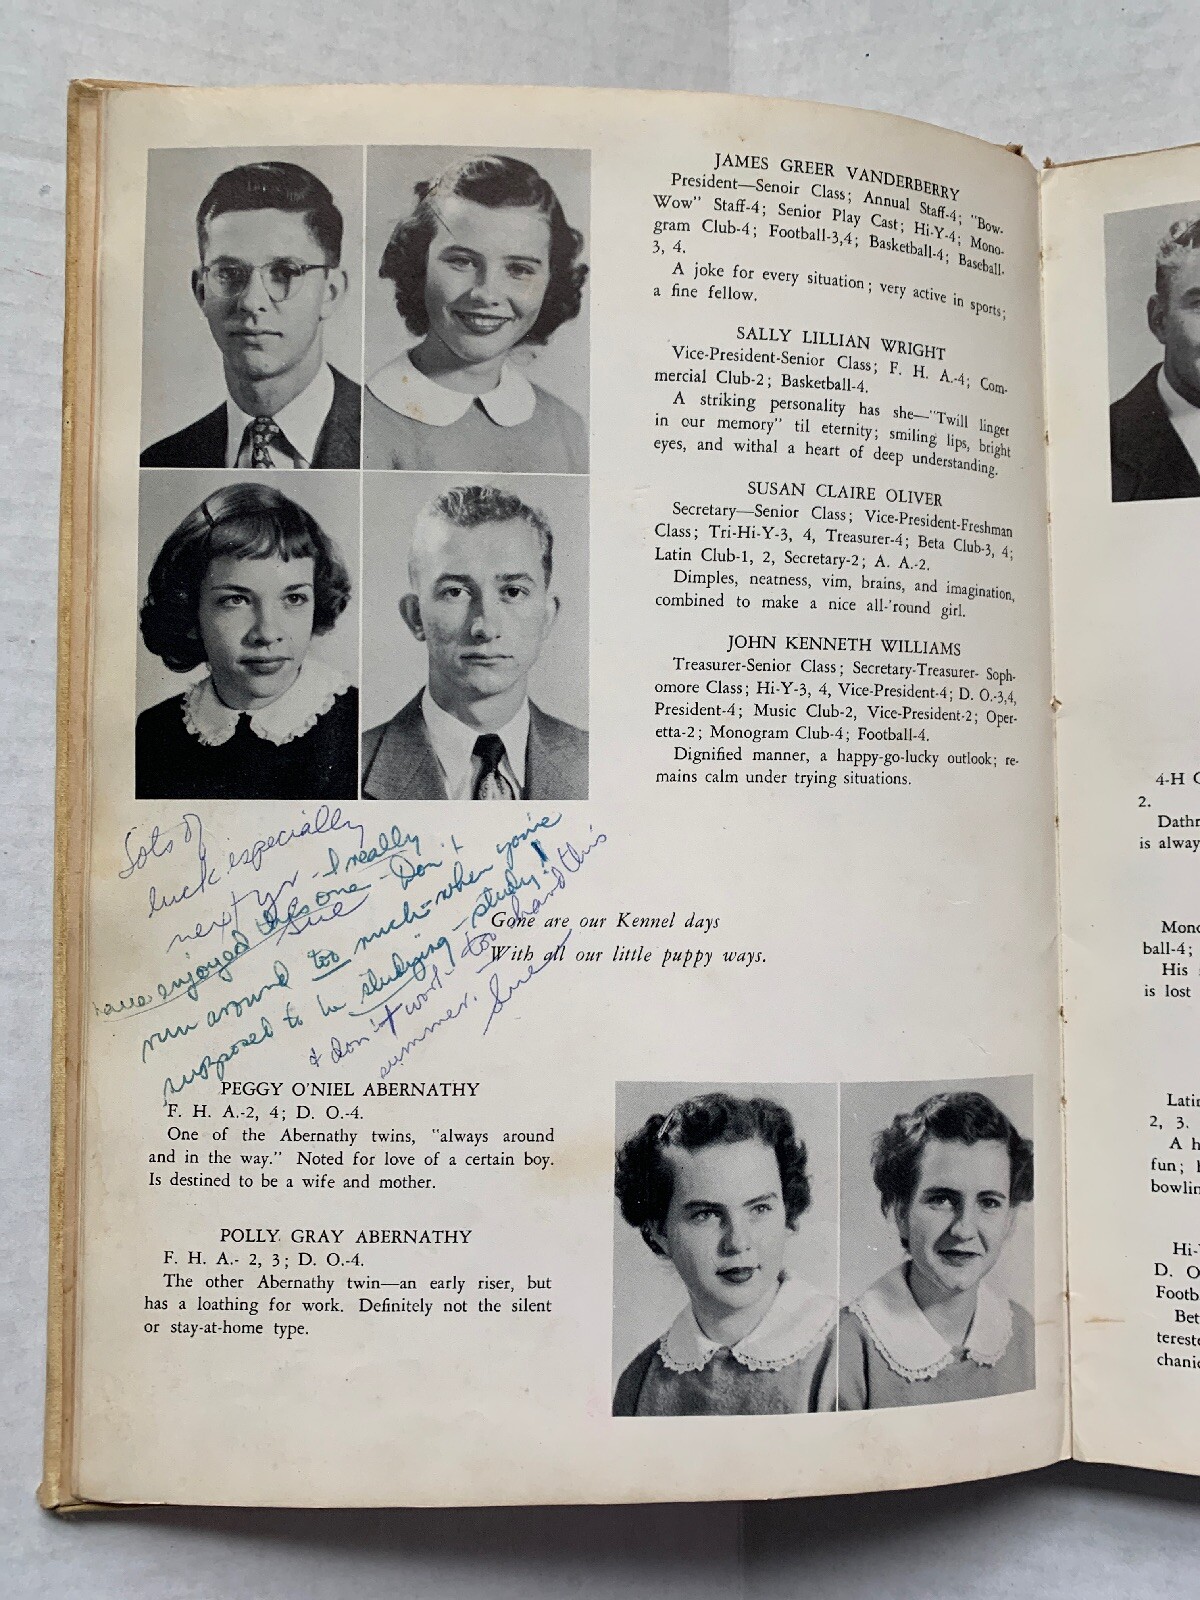 JAMES GREER VANDERBERRY
President—Senoir Class; Annual Staff-4; "Bow-
Wow" Staff-4; Senior Play Cast; Hi-Y-4; Mono-
gram Club-4; Football-3,4; Basketball-4; Baseball-
3, 4.
A joke for every situation; very active in sports;
a fine fellow.
SALLY LILLIAN WRIGHT
Vice-President-Senior Class; F. H. A.-4; Com-
mercial Club-2; Basketball-4.
A striking personality has she—"Twill linger
in our memory" til eternity; smiling lips, bright
eyes, and withal a heart of deep understanding.
SUSAN CLAIRE OLIVER
Secretary—Senior Class; Vice-President-Freshman
Class; Tri-Hi-Y-3, 4, Treasurer-4; Beta Club-3, 4;
Latin Club-1, 2, Secretary-2; A. A.-2.
Dimples, neatness, vim, brains, and imagination,
combined to make a nice all-'round girl.
JOHN KENNETH WILLIAMS
Treasurer-Senior Class; Secretary-Treasurer- Soph-
omore Class; Hi-Y-3, 4, Vice-President-4; D. O.-3,4,
President-4; Music Club-2, Vice-President-2; Oper-
etta-2; Monogram Club-4; Football-4.
Dignified manner, a happy-go-lucky outlook; re-
mains calm under trying situations.
Lots of
luck especially
next yr - I really
have enjoyed this one - Don't
Sue
run around too much when you're
supposed to be studying - study!
& don't work too hard this
summer. Sue
Gone are our Kennel days
With all our little puppy ways.
PEGGY O'NIEL ABERNATHY
F. H. A.-2, 4; D. O.-4.
One of the Abernathy twins, "always around
and in the way." Noted for love of a certain boy.
Is destined to be a wife and mother.
POLLY GRAY ABERNATHY
F. H. A.- 2, 3; D. O.-4.
The other Abernathy twin—an early riser, but
has a loathing for work. Definitely not the silent
or stay-at-home type.
4-H
2.
is
Mono
ball-4;
His
is lost
Latin
2, 3.
A
fun;
bowlin
D. O
Footb
Bet
tereste
chani